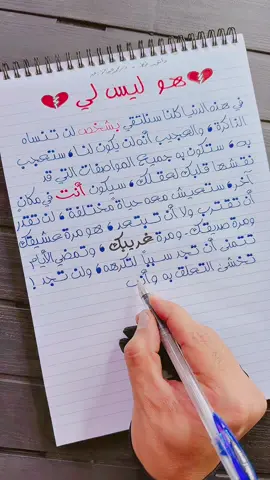 هو ليس لي
في هذه الدنيا كلنا سنلتقي بشخص لن تنساه
الذاكرة، والعجيب أنه لن يكون لنا، ستعجب
به، ستكون به جميع المواصفات التي قد
نقشها قلبك لعقلك، سيكون أنت في مكان
آخر، ستعيش معه حياة مختلفة، لن تقدر
أن تقترب ولا أن تبتعد، هو مرة عشيقك
ومرة صديقك - ومرة غريبك، وتمضي الأيام
تتمنى أن تجد سبباً لتكرهه، ولن تجد!
تخشى التعلق به وأنت